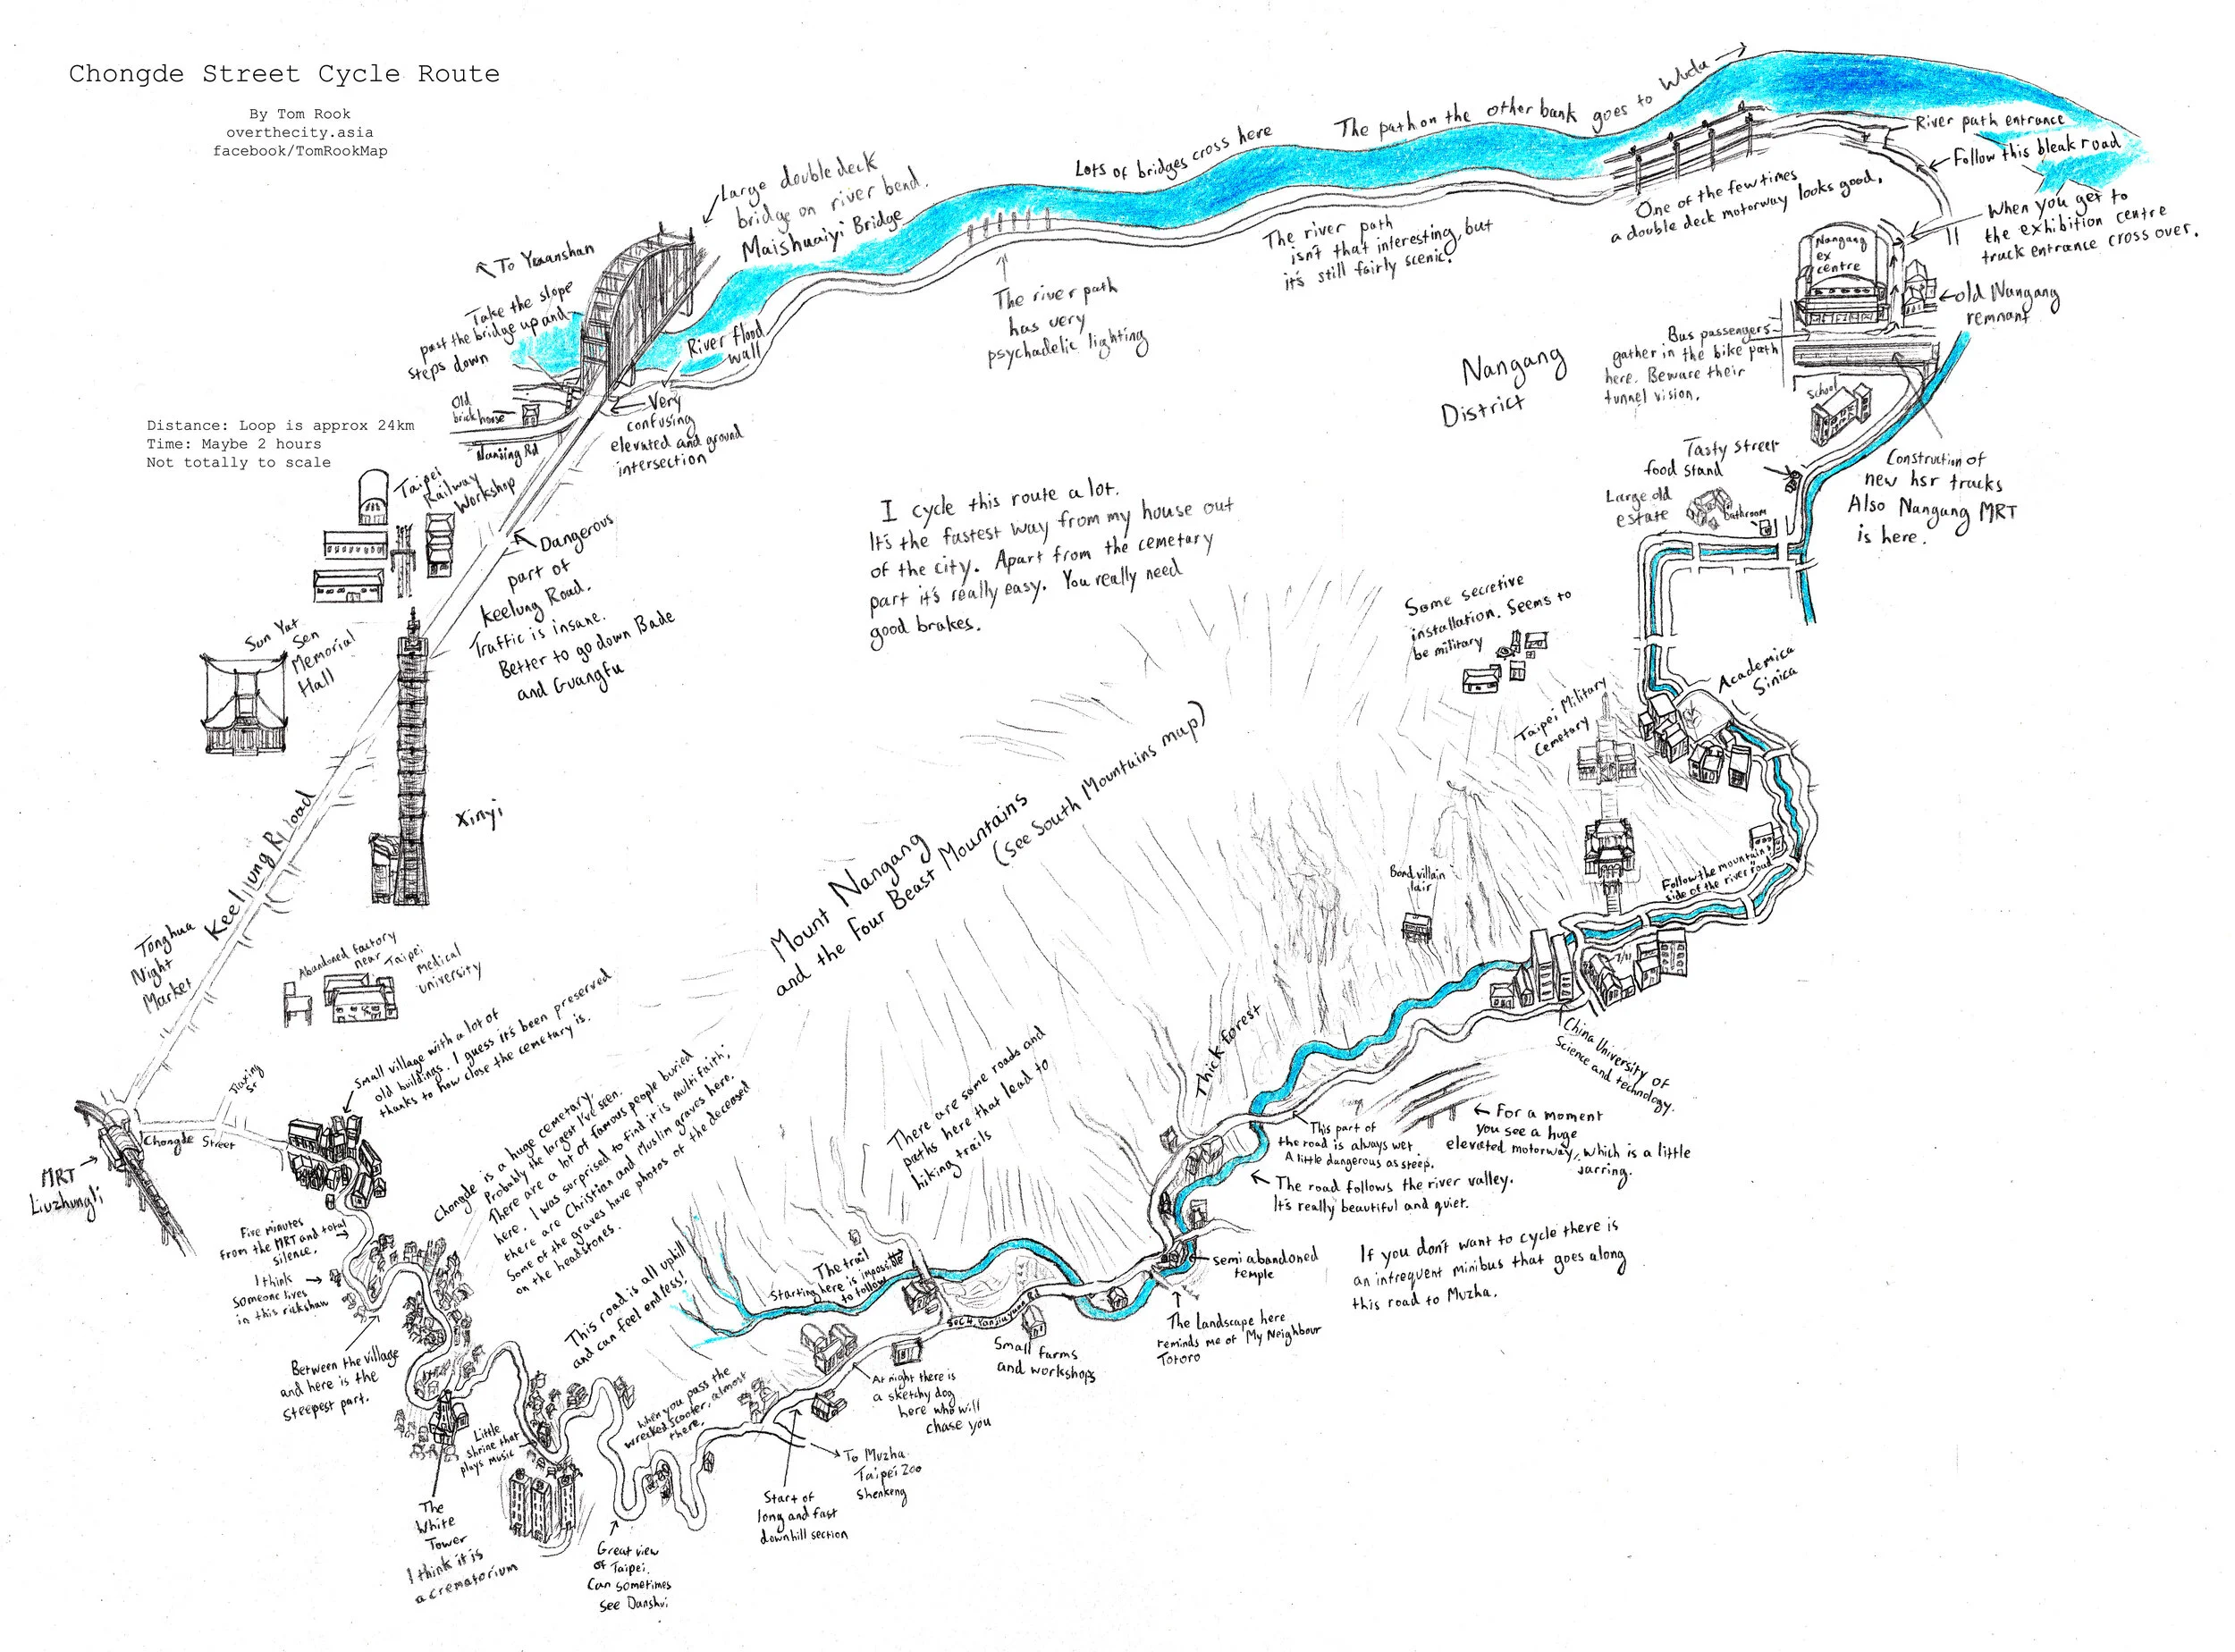 Chongde Street Cycle Route
By Tom Rook
overthecity.asia
facebook/TomRookMap
Large double deck
bridge on river bend.
Maishuaiyi Bridge
To Yuanshan
Take the slope
past the bridge up and
steps down
River flood
wall
Old
brick house
Nanjing Rd
Very
confusing
elevated and ground
intersection
Lots of bridges cross here
The path on the other bank goes to Wudu
The river path
has very
psychadelic lighting
The river path
isn't that interesting, but
it's still fairly scenic.
One of the few times
a double deck motorway looks good.
River path entrance
Follow this bleak road
When you get to
the exhibition centre
truck entrance cross over.
Nangang
ex
centre
old Nangang
remnant
Bus passengers
gather in the bike path
here. Beware their
tunnel vision.
School
Nangang
District
Tasty street
food stand
Large old
estate
Bathroom
Construction of
new hsr tracks
Also Nangang MRT
is here.
Distance: Loop is approx 24km
Time: Maybe 2 hours
Not totally to scale
Taipei
Railway
Workshop
Dangerous
part of
Keelung Road.
Traffic is insane.
Better to go down Bade
and Guangfu
Sun Yat
Sen
Memorial
Hall
I cycle this route a lot.
It's the fastest way from my house out
of the city. Apart from the cemetary
part it's really easy. You really need
good brakes.
Some secretive
installation. Seems to
be military
Taipei Military
Cemetary
Academica
Sinica
Xinyi
Keelung Rd
Road
Mount Nangang
and the Four Beast Mountains
(See South Mountains map)
Bond villain
lair
Follow the mountain
side of the river road
7/11
China University of
Science and technology.
Tonghua
Night
Market
Abandoned factory
near Taipei
Medical
University
Small village with a lot of
old buildings. I guess it's been preserved
thanks to how close the cemetary is.
Jiaxing
St
Chongde Street
MRT
Liuzhangli
Chongde is a huge cemetary.
Probably the largest I've seen.
There are a lot of famous people buried
here. I was surprised to find it is multifaith;
there are Christian and Muslim graves here.
Some of the graves have photos of the deceased
on the headstones.
There are some roads and
paths here that lead to
hiking trails
Thick forest
This part of
the road is always wet.
A little dangerous as steep.
For a moment
you see a huge
elevated motorway, which is a little
jarring.
The road follows the river valley.
It's really beautiful and quiet.
If you don't want to cycle there is
an infrequent minibus that goes along
this road to Muzha.
Five minutes
from the MRT and total
silence.
I think
someone lives
in this rickshaw
Between the village
and here is the
steepest part.
This road is all uphill
and can feel endless!
The trail
Starting here is impossible
to follow
Semi abandoned
temple
The landscape here
reminds me of My Neighbour
Totoro
Sec 4 Yanjiuyuan Rd
Small farms
and workshops
At night there is
a sketchy dog
here who will
chase you
When you pass the
wrecked scooter, almost
there.
Little
shrine that
plays music
To Muzha
Taipei Zoo
Shenkeng
Start of
long and fast
downhill section
The
White
Tower
I think it is
a crematorium
Great view
of Taipei.
Can sometimes
see Danshui